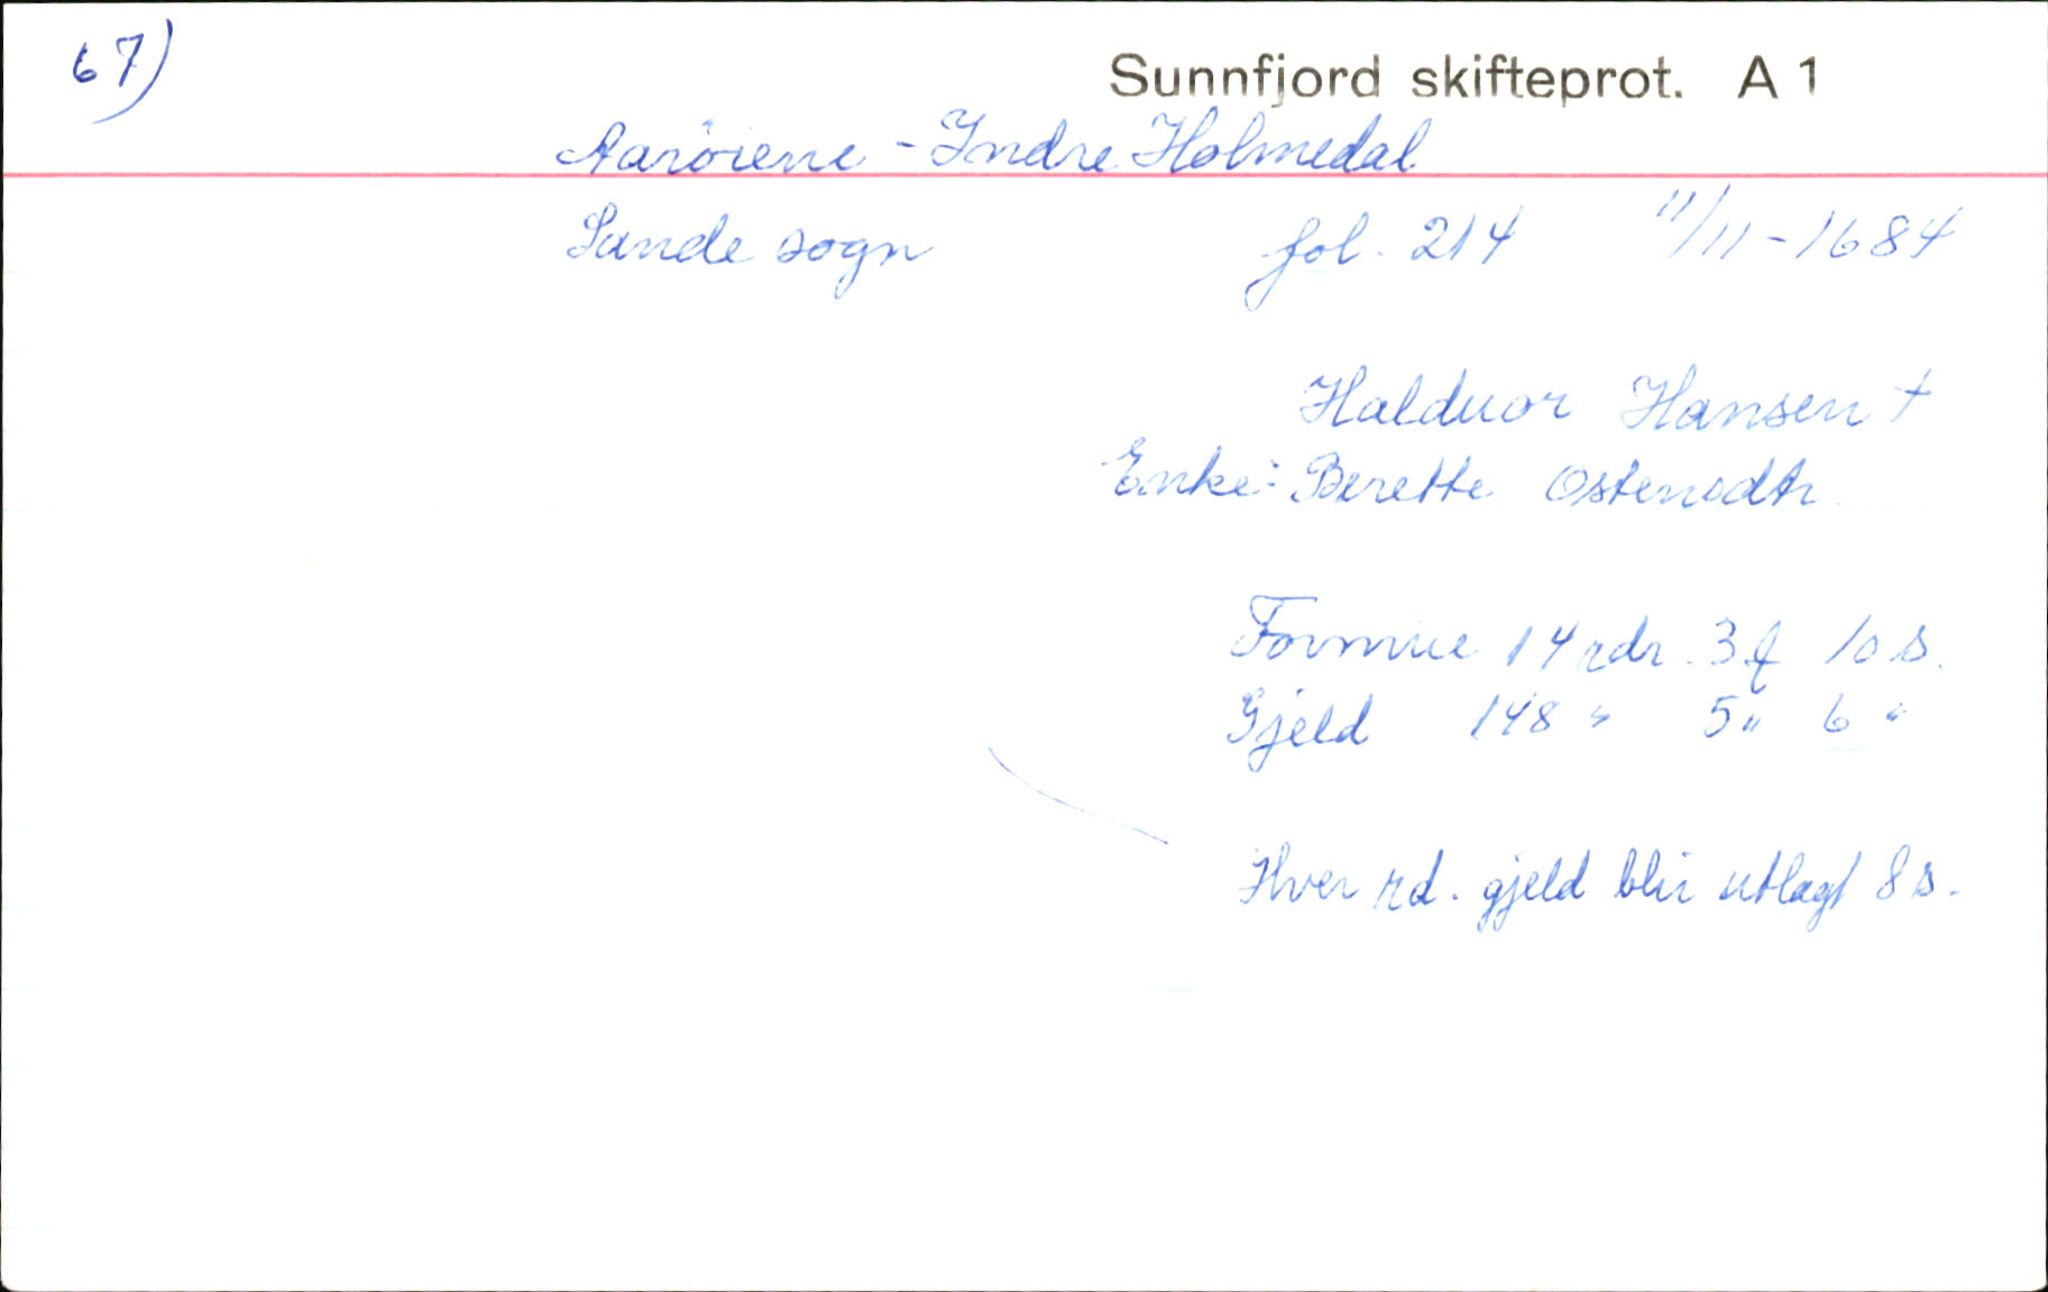 67)
Sunnfjord skifteprot. A 1
Aarøiene - Indre Holmedal
Sande sogn fol. 214 11/11 - 1684
Halduor Hansen +
Enke: Berette Ostensdtr
Formue 14 rdr. 3 ƒ 10 s.
Gjeld 148 " 5 " 6 "
Hver rd. gjeld blir utlagt 8 s.